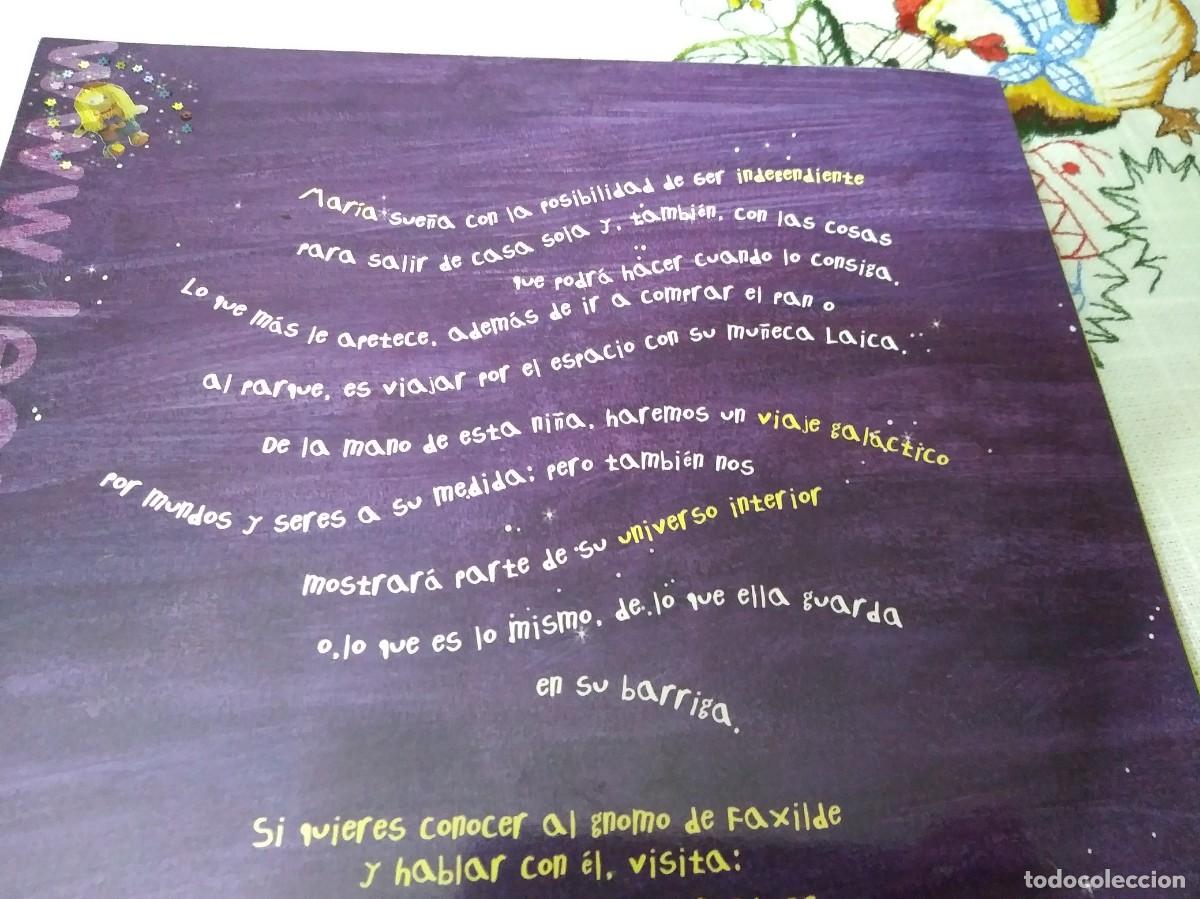 María sueña con la posibilidad de ser independiente
para salir de casa sola y, también, con las cosas
que podrá hacer cuando lo consiga.
Lo que más le apetece, además de ir a comprar el pan o
al parque, es viajar por el espacio con su muñeca Laica.
De la mano de esta niña, haremos un viaje galáctico
por mundos y seres a su medida; pero también nos
mostrará parte de su universo interior
o, lo que es lo mismo, de lo que ella guarda
en su barriga.
Si quieres conocer al gnomo de Faxilde
y hablar con él, visita:
todocoleccion